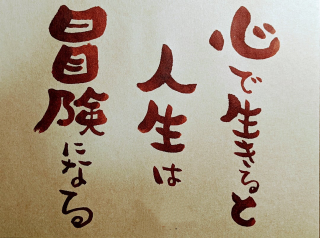 心で生きると
人生は
冒険になる